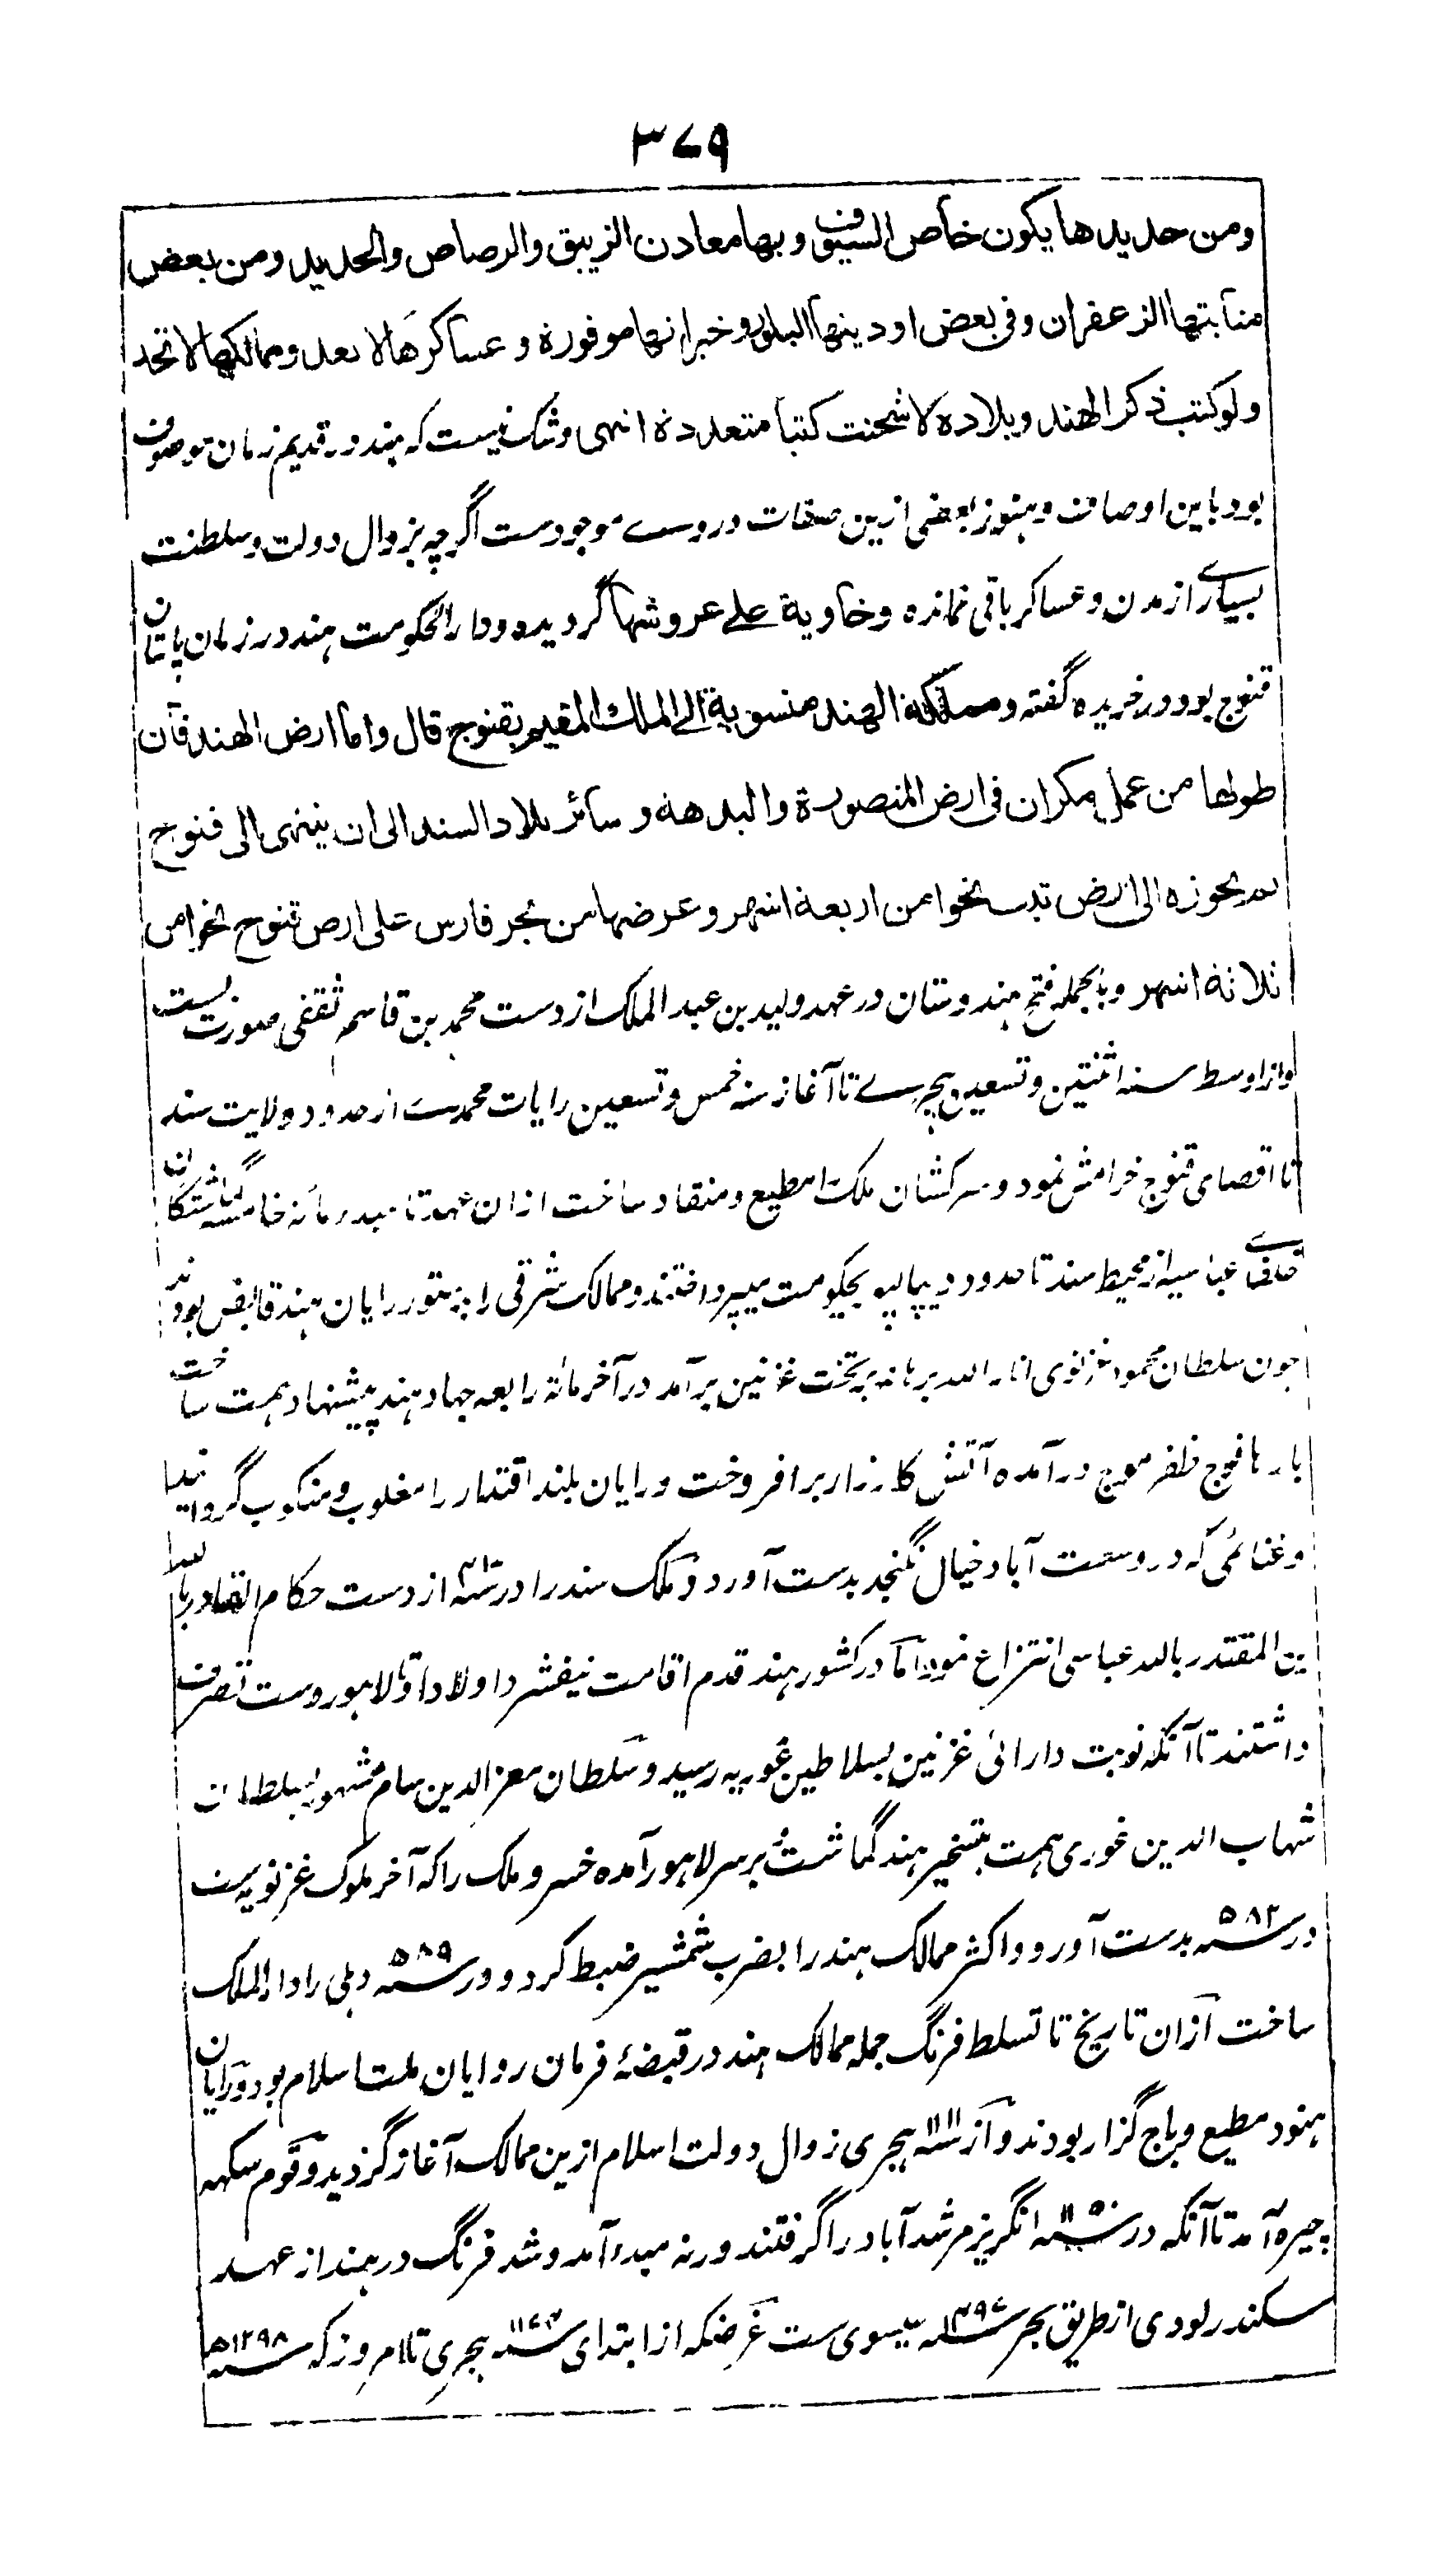 ۳۷۹
ومن حدیدها یکون خاص السیوف وبها معادن الزیبق والرصاص والحدید ومن بعض
منابتها الزعفران وفی بعض اودیتها البلور وخیراتها موفورة وعساکرها لا تعد وممالکها لا تحد
ولو کتب ذکر الهند وبلاده لا شحنت کتبا متعددة انتهی وشک نیست که هند در قدیم زمان موصوف
بود باین اوصاف وهنوز بعضی ازین صفات در وے موجودست اگرچه بزوال دولت وسلطنت
بسیارے از مدن وعساکر باقی نمانده وخاویة علے عروشها گردیده ودار الحکومت هند در زمان باستان
قنوج بود در خریده گفته ومملکة الهند منسوبة الی الملک المقیم بقنوج قال واما ارض الهند فان
طولها من عمل مکران فی ارض المنصورة والبدهة وسائر بلاد السند الی ان ینتهی الی قنوج
ثم یجوزه الی ارض تبت نحوا من اربعة اشهر وعرضها من بحر فارس علی ارض قنوج نحوا من
ثلاثة اشهر وبالجمله فتح هندوستان در عهد ولید بن عبد الملک از دست محمد بن قاسم ثقفی صورت بست
واز اوسط سنه اثنتین وتسعین هجرے تا آغاز سنه خمس وتسعین رایات محمدے از حدود ولایت سند
تا اقصای قنوج خرامش نمود وسرکشان ملک را مطیع ومنقاد ساخت ازان عهد تا مبدء مائه خامسه گماشتگان
خلفاے عباسیه از محیط سند تا حدود دیپالپور بحکومت میپرداختند وممالک شرقی را بدستور رایان هند قابض بودند
چون سلطان محمود غزنوی انار الله برهانه بر تخت غزنین برآمد در آخر مائه رابعه جهاد هند پیشنهاد همت ساخت
بارها فوج ظفر موج درآمده آتش کارزار برافروخت ورایان بلند اقتدار را مغلوب ومنکوب گردانید
وغنائمی که در وسعت آباد خیال نگنجد بدست آورد وملک سند را در سنه از دست حکام القادر بالله
بن المقتدر بالله عباسی انتزاع نمود اما در کشور هند قدم اقامت نیفشرد اولاد او تا لاهور دست تصرف
داشتند تا آنکه نوبت دارائی غزنین بسلاطین غوریه رسید وسلطان معز الدین سام مشهور بسلطان
شهاب الدین غوری همت بتسخیر هند گماشت بر سر لاهور آمده خسرو ملک را که آخر ملوک غزنویه ست
در سنه ۵۸۲ بدست آورد واکثر ممالک هند را بضرب شمشیر ضبط کرد ودر سنه ۵۸۹ دهلی را دار الملک
ساخت ازان تاریخ تا تسلط فرنگ جمله ممالک هند در قبضهٔ فرمان روایان ملت اسلام بود ورایان
هنود مطیع وباج گزار بودند واز سنه ۱۱۱۱ هجری زوال دولت اسلام ازین ممالک آغاز گردید وقوم سکهه
چیره آمد تا آنکه در سنه ۱۱۵۰ انگریز مرشد آباد را گرفتند ورنه مبدء آمد وشد فرنگ در هند از عهد
سکندر لودی از طریق بحر سنه ۱۴۹۷ عیسوی ست غرضکه از ابتدای سنه ۱۱۷۳ هجری تا امروز که سنه ۱۲۹۸ه